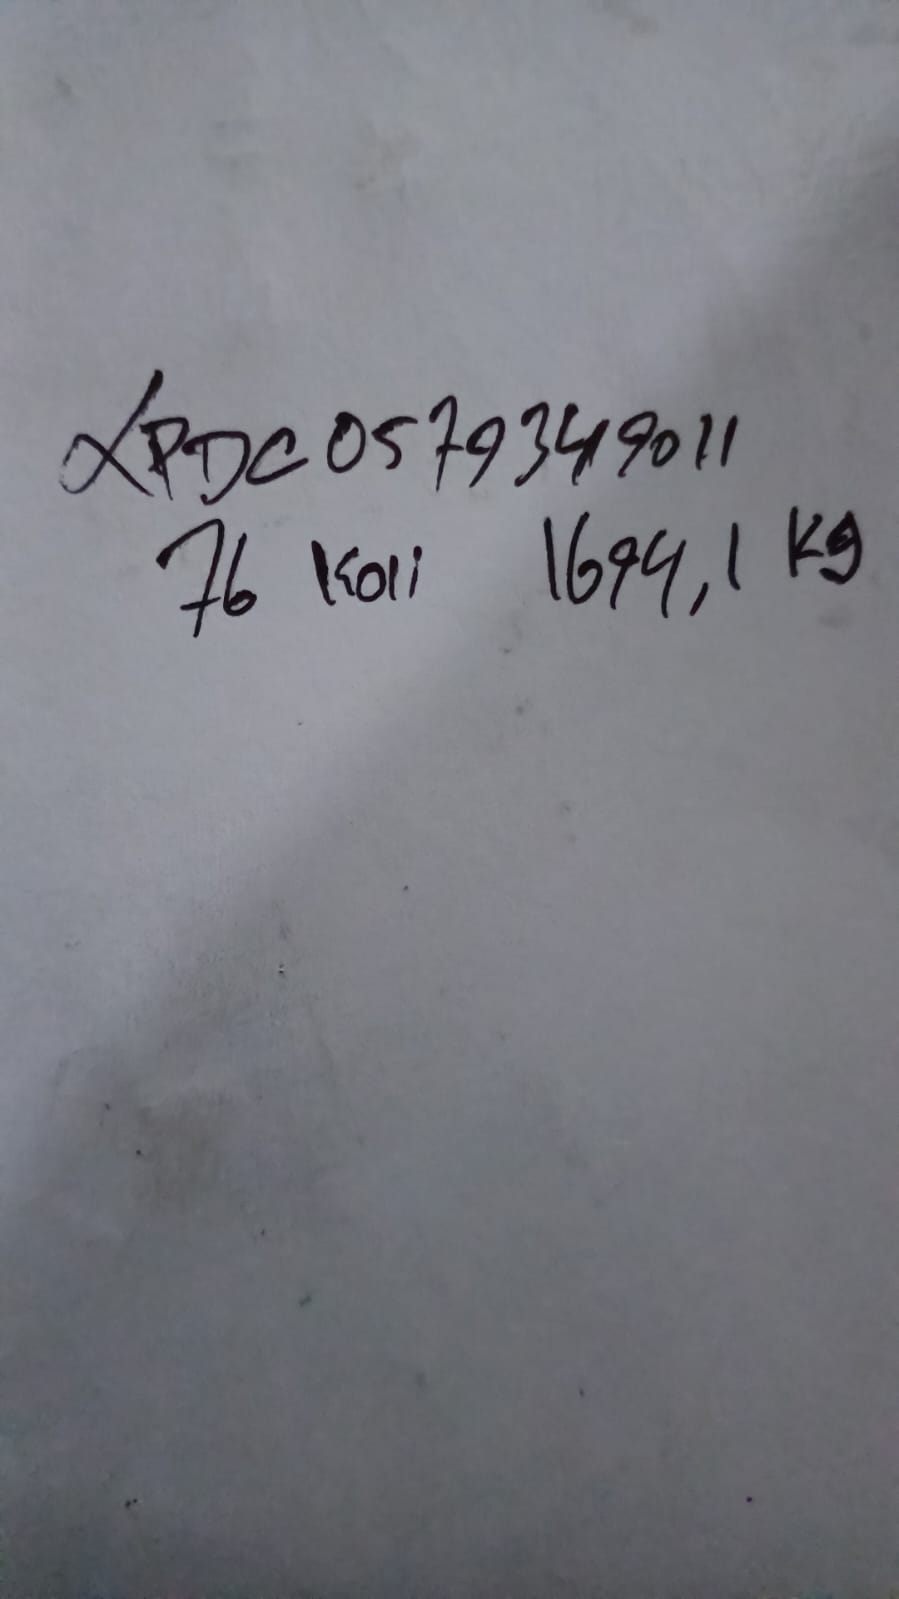 XPDC0579349011
76 Koli 1694,1 kg